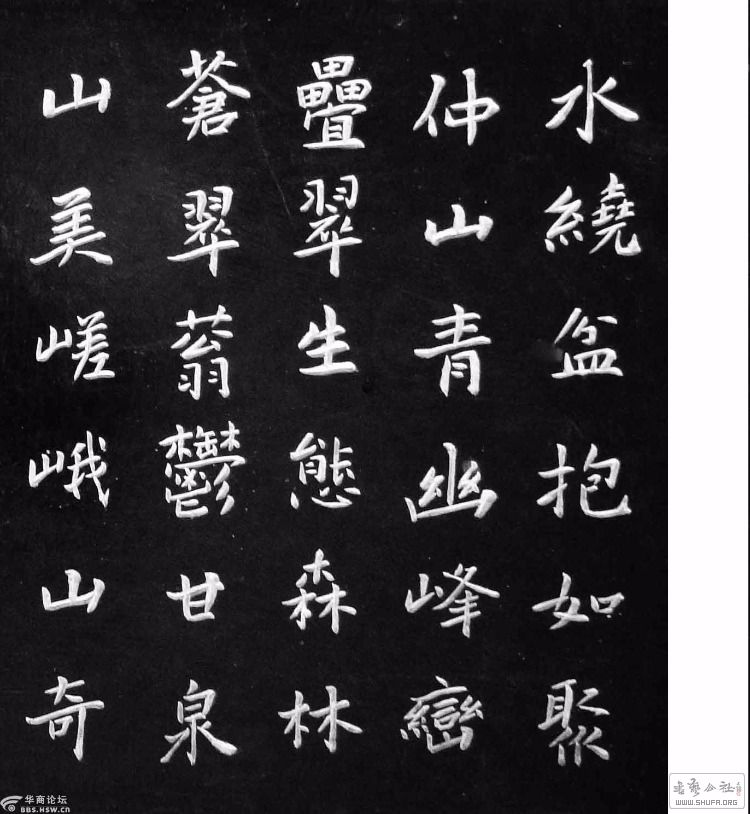 水繞盆抱如聚
仲山青幽峰巒
疊翠生態森林
蒼翠蓊鬱甘泉
山美嵯峨山奇
华商论坛
BBS.HSW.CN
书艺公社
WWW.SHUFA.ORG